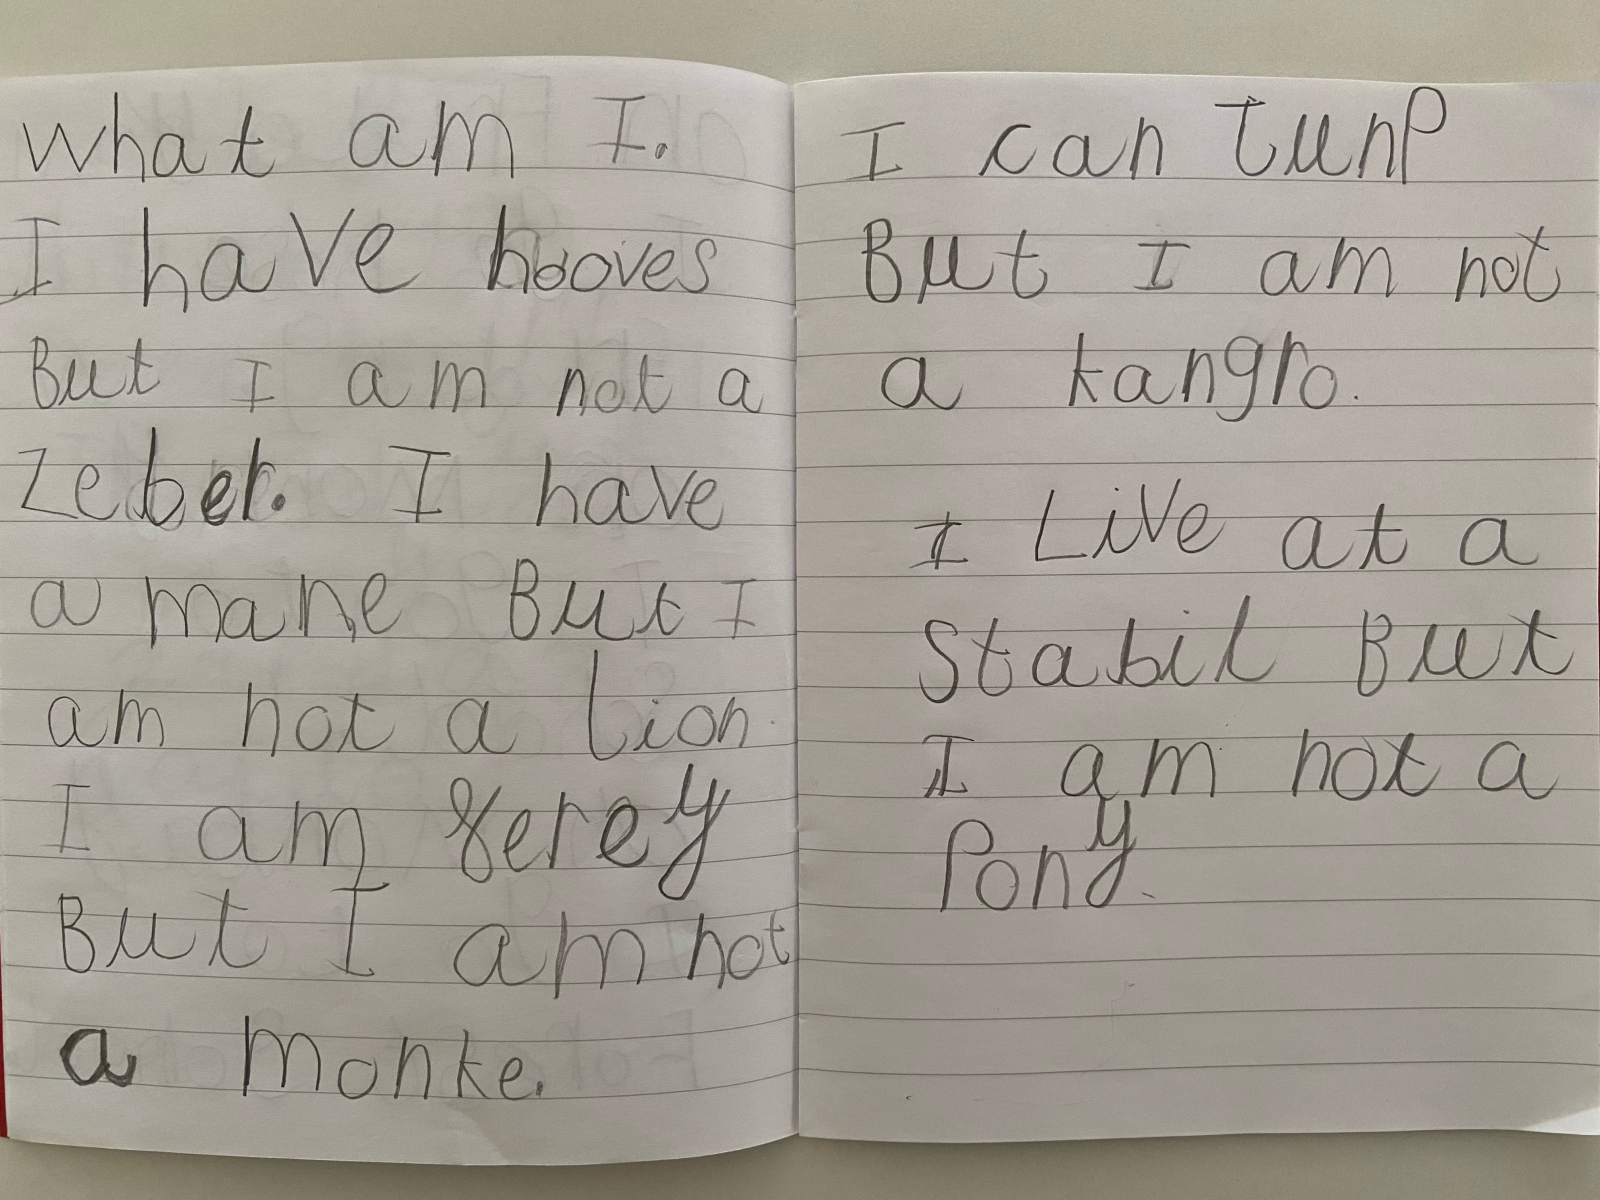 What am I.
I have hooves
But I am not a
Zeber. I have
a mane But I
am not a lion.
I am gerey
But I am not
a monke.
I can Tunp
But I am not
a kangro.
I Live at a
Stabil But
I am not a
Pony.